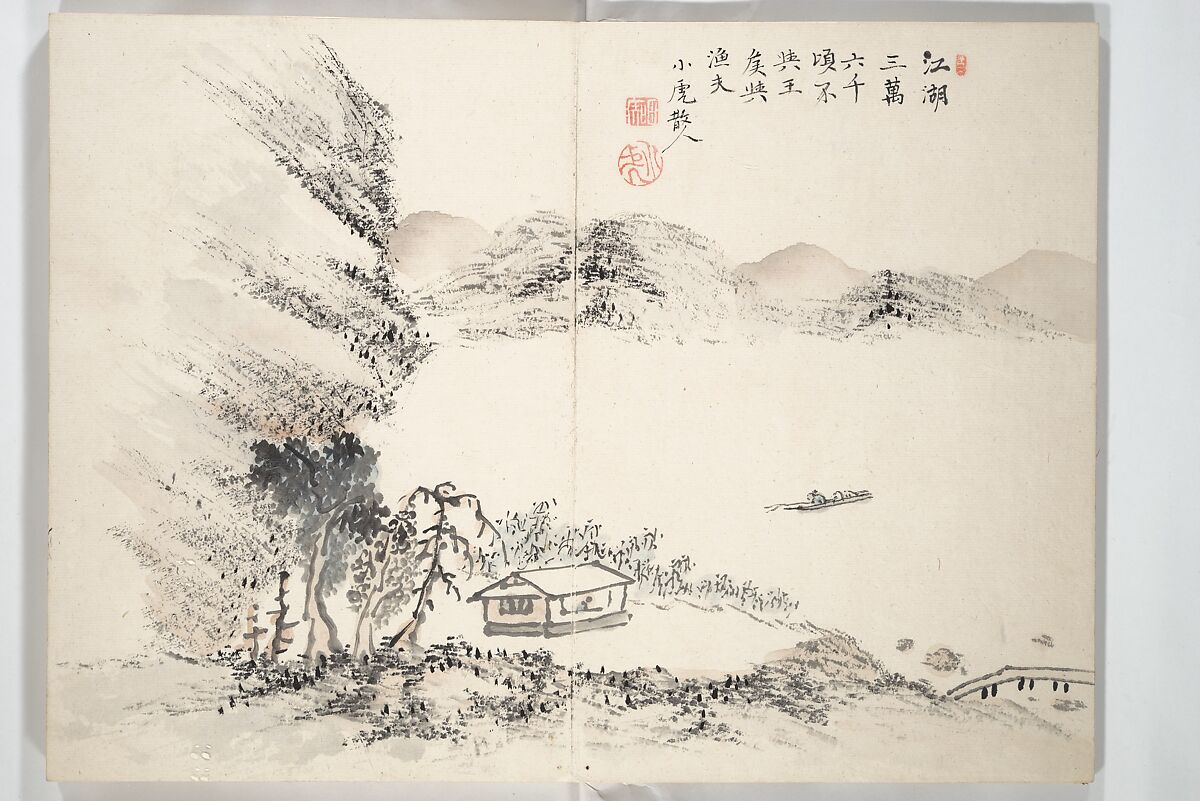 江湖
三萬
六千
頃不
與王
侯與
漁夫
小虎散人